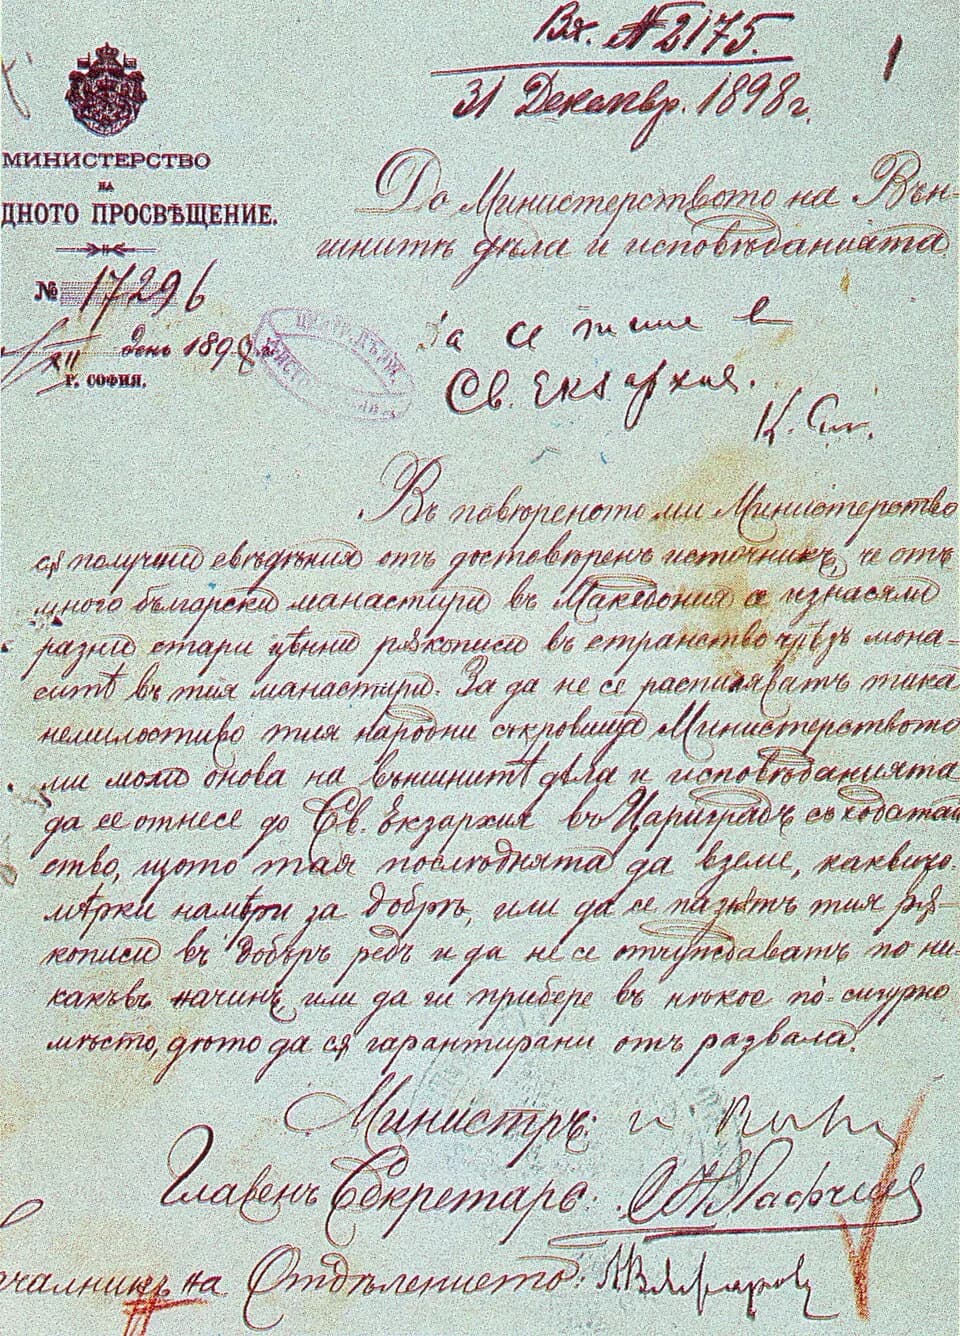 Вх. № 2175.
31 Декемвр. 1898 г.
МИНИСТЕРСТВО
НА
ДНОТО ПРОСВѢЩЕНИЕ.
№ 17296
XII день 1898
Г. СОФИЯ.
До Министерството на Вън-
шнитѣ дѣла и исповѣданията
Да се пише в
Св. Екзархия.
К. Ст.
Въ повѣреното ми Министерство
сѫ получени сведѣния отъ достовѣренъ источникъ, че отъ
много български манастири въ Македония се изнасяли
разни стари цѣнни рѫкописи въ странство чрѣзъ мона-
ситѣ въ тия манастири. За да не се распиляватъ така
немилостиво тия народни съкровища Министерството
ми моли онова на външнитѣ дѣла и исповѣданията
да се отнесе до Св. Екзархия въ Цариградъ съ ходатай
ство, щото тая послѣднята да вземе, каквито
мѣрки намѣри за добрѣ, или да се пазѭтъ тия рѫ-
кописи въ добъръ редъ и да не се отчуждаватъ по ни-
какъвъ начинъ, или да ги прибере въ нѣкое по-сигурно
мѣсто, дѣто да сѫ гарантирани отъ развала.
Министръ:
Главенъ Секретарь:
чалникъ на Отдѣлението: